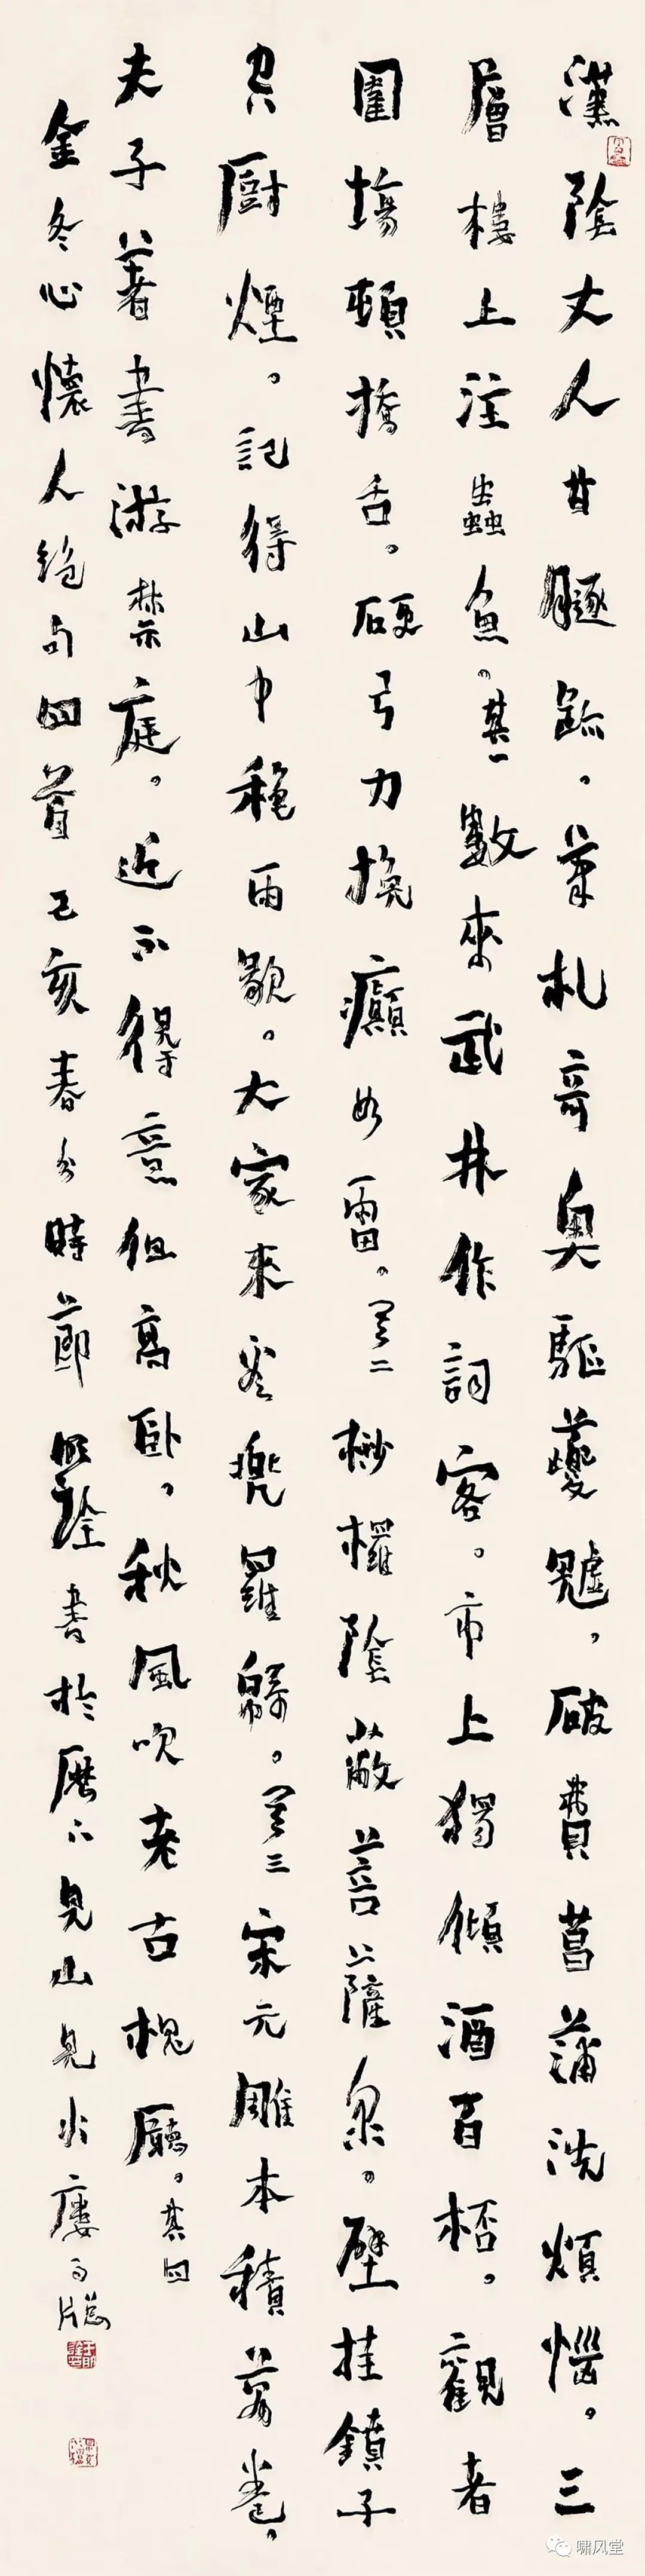 漢陰丈人甘遯迹。筆札奇奥驅夔魖，破費菖蒲洗煩惱。三
層樓上注蟲魚。其一數來武林作詞客。市上獨傾酒百桮。觀者
圍場頓撟舌。硬弓力挽癲如雷。其二桫欏陰蔽菩薩泉。壁挂鎖子
只廚煙。記得山中穐雨歇。大家來卷兜羅緜。其三宋元雕本積萬卷。
夫子著書游禁庭。近不得意但高臥，秋風吹老古槐廳。其四
金冬心懷人絕句四首己亥春分時節書於歷下見山見水廔
啸风堂